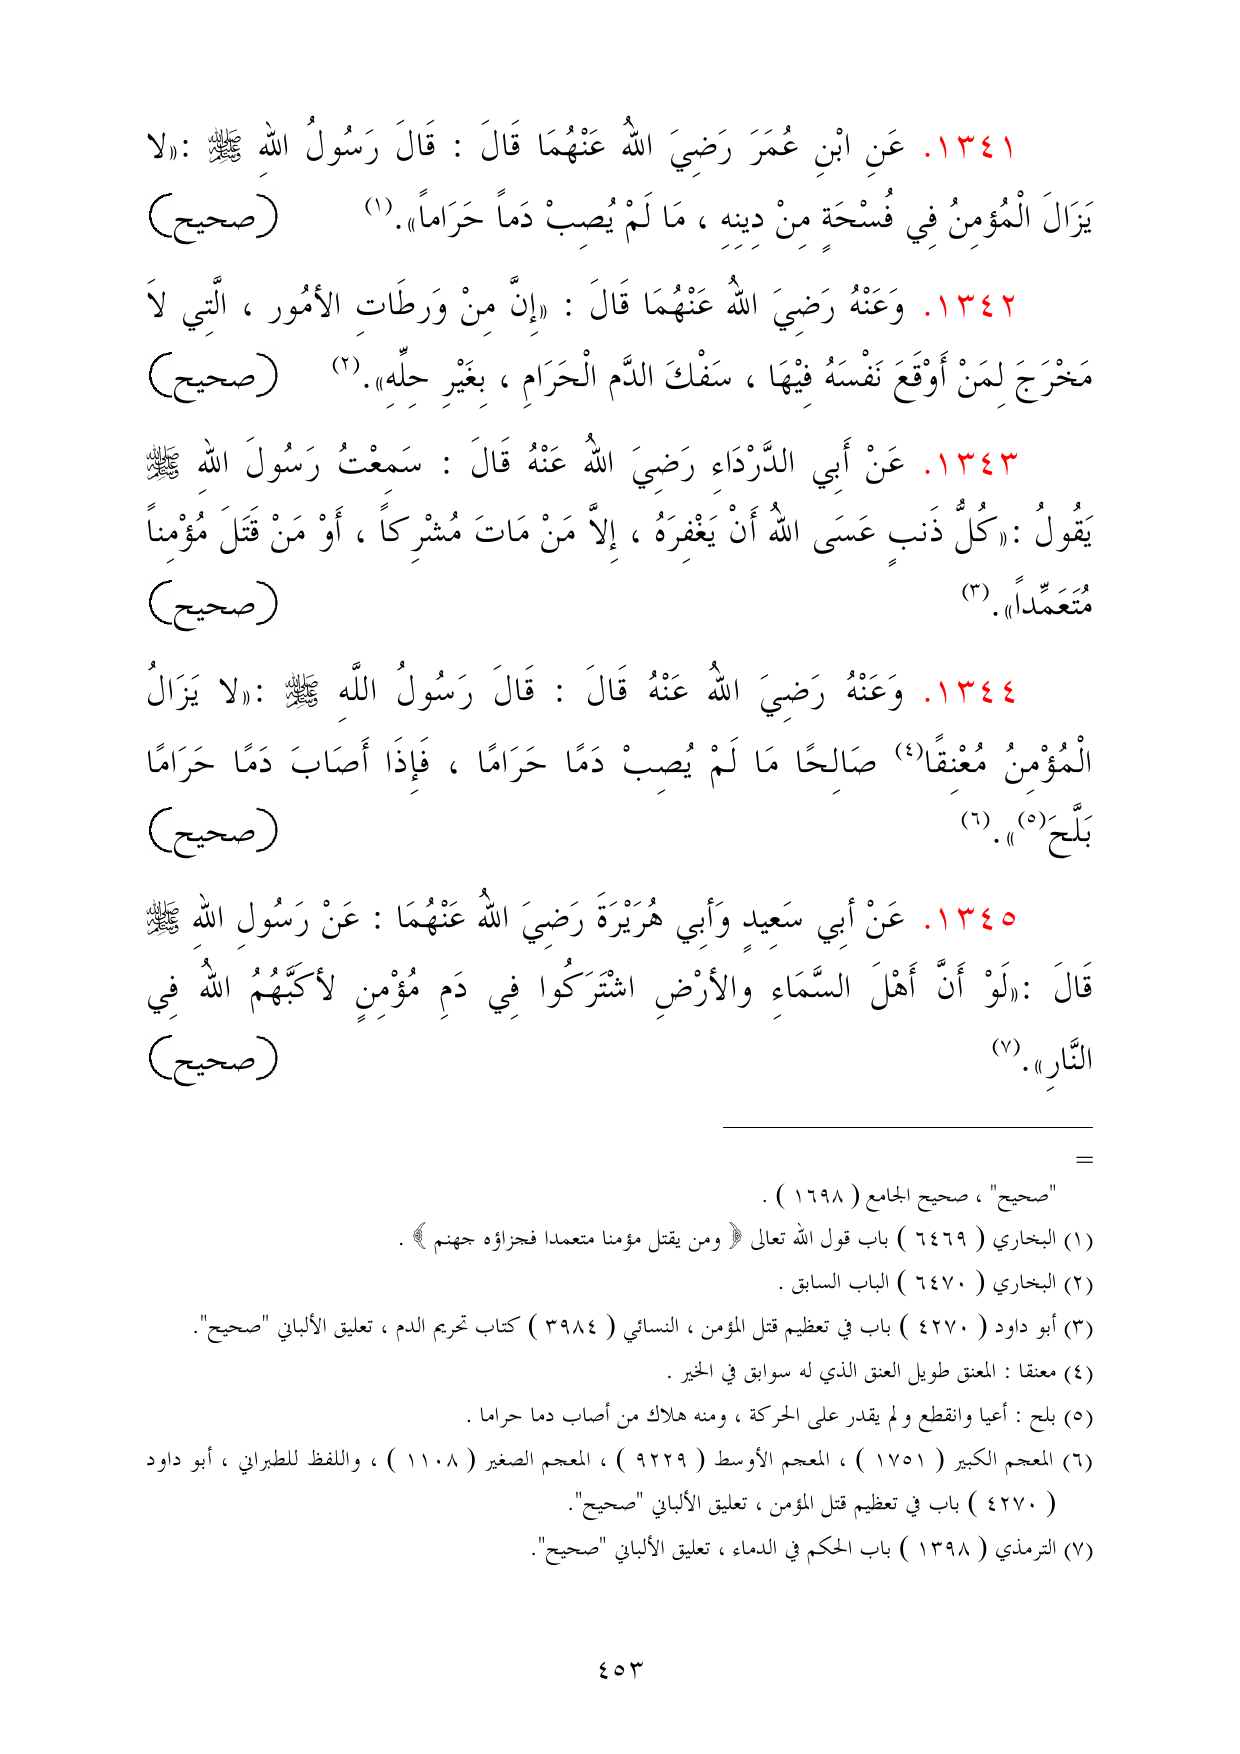 ١٣٤١. عَنِ ابْنِ عُمَرَ رَضِيَ اللهُ عَنْهُمَا قَالَ : قَالَ رَسُولُ اللهِ ﷺ :«لا
يَزَالَ الْمُؤمِنُ فِي فُسْحَةٍ مِنْ دِينِهِ ، مَا لَمْ يُصِبْ دَماً حَرَاماً».(١) (صحيح)
١٣٤٢. وَعَنْهُ رَضِيَ اللهُ عَنْهُمَا قَالَ : «إِنَّ مِنْ وَرطَاتِ الأمُور ، الَّتِي لاَ
مَخْرَجَ لِمَنْ أَوْقَعَ نَفْسَهُ فِيْهَا ، سَفْكَ الدَّم الْحَرَامِ ، بِغَيْرِ حِلِّهِ».(٢) (صحيح)
١٣٤٣. عَنْ أَبِي الدَّرْدَاءِ رَضِيَ اللهُ عَنْهُ قَالَ : سَمِعْتُ رَسُولَ اللهِ ﷺ
يَقُولُ :«كُلُّ ذَنبٍ عَسَى اللهُ أَنْ يَغْفِرَهُ ، إِلاَّ مَنْ مَاتَ مُشْرِكاً ، أَوْ مَنْ قَتَلَ مُؤْمِناً
مُتَعَمِّداً».(٣) (صحيح)
١٣٤٤. وَعَنْهُ رَضِيَ اللهُ عَنْهُ قَالَ : قَالَ رَسُولُ اللَّهِ ﷺ :«لا يَزَالُ
الْمُؤْمِنُ مُعْنِقًا(٤) صَالِحًا مَا لَمْ يُصِبْ دَمًا حَرَامًا ، فَإِذَا أَصَابَ دَمًا حَرَامًا
بَلَّحَ(٥)».(٦) (صحيح)
١٣٤٥. عَنْ أبِي سَعِيدٍ وَأبِي هُرَيْرَةَ رَضِيَ اللهُ عَنْهُمَا : عَنْ رَسُولِ اللهِ ﷺ
قَالَ :«لَوْ أَنَّ أَهْلَ السَّمَاءِ والأرْضِ اشْتَرَكُوا فِي دَمِ مُؤْمِنٍ لأكَبَّهُمُ اللهُ فِي
النَّارِ».(٧) (صحيح)
=
"صحيح" ، صحيح الجامع ( ١٦٩٨ ) .
(١) البخاري ( ٦٤٦٩ ) باب قول الله تعالى ﴿ ومن يقتل مؤمنا متعمدا فجزاؤه جهنم ﴾ .
(٢) البخاري ( ٦٤٧٠ ) الباب السابق .
(٣) أبو داود ( ٤٢٧٠ ) باب في تعظيم قتل المؤمن ، النسائي ( ٣٩٨٤ ) كتاب تحريم الدم ، تعليق الألباني "صحيح".
(٤) معنقا : المعنق طويل العنق الذي له سوابق في الخير .
(٥) بلح : أعيا وانقطع و لم يقدر على الحركة ، ومنه هلاك من أصاب دما حراما .
(٦) المعجم الكبير ( ١٧٥١ ) ، المعجم الأوسط ( ٩٢٢٩ ) ، المعجم الصغير ( ١١٠٨ ) ، واللفظ للطبراني ، أبو داود
( ٤٢٧٠ ) باب في تعظيم قتل المؤمن ، تعليق الألباني "صحيح".
(٧) الترمذي ( ١٣٩٨ ) باب الحكم في الدماء ، تعليق الألباني "صحيح".
٤٥٣